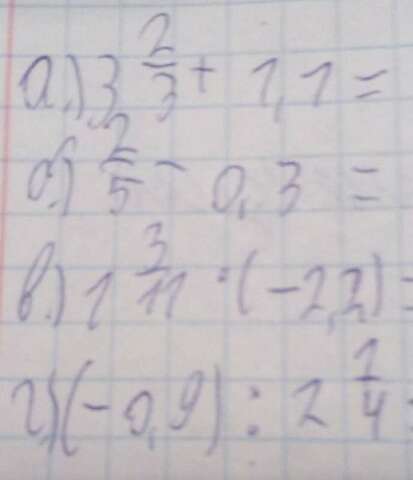 а.) 3 2/3 + 1,1 =
б.) 2/5 - 0,3 =
в.) 1 3/11 · (-2,2) =
г.) (-0,9) : 1 1/4 =